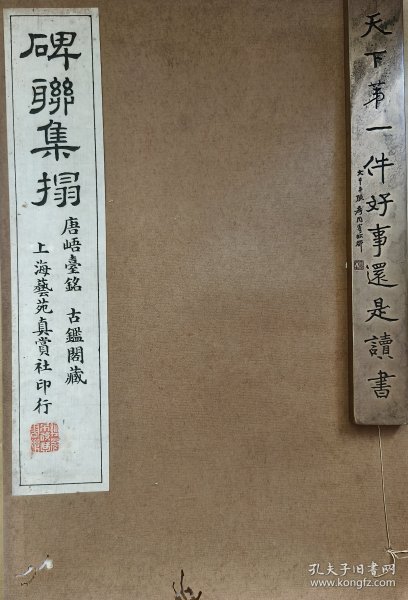 碑聯集搨
唐峿臺銘 古鑑閣藏
上海藝苑真賞社印行
天下第一件好事還是讀書
孔夫子旧书网
www.kongfz.com